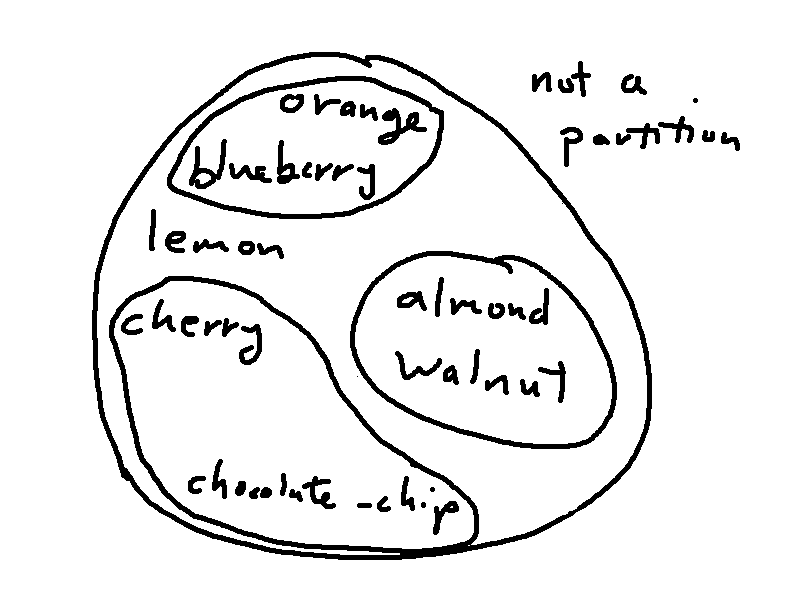 not a
partition
orange
blueberry
lemon
cherry
almond
walnut
chocolate-chip